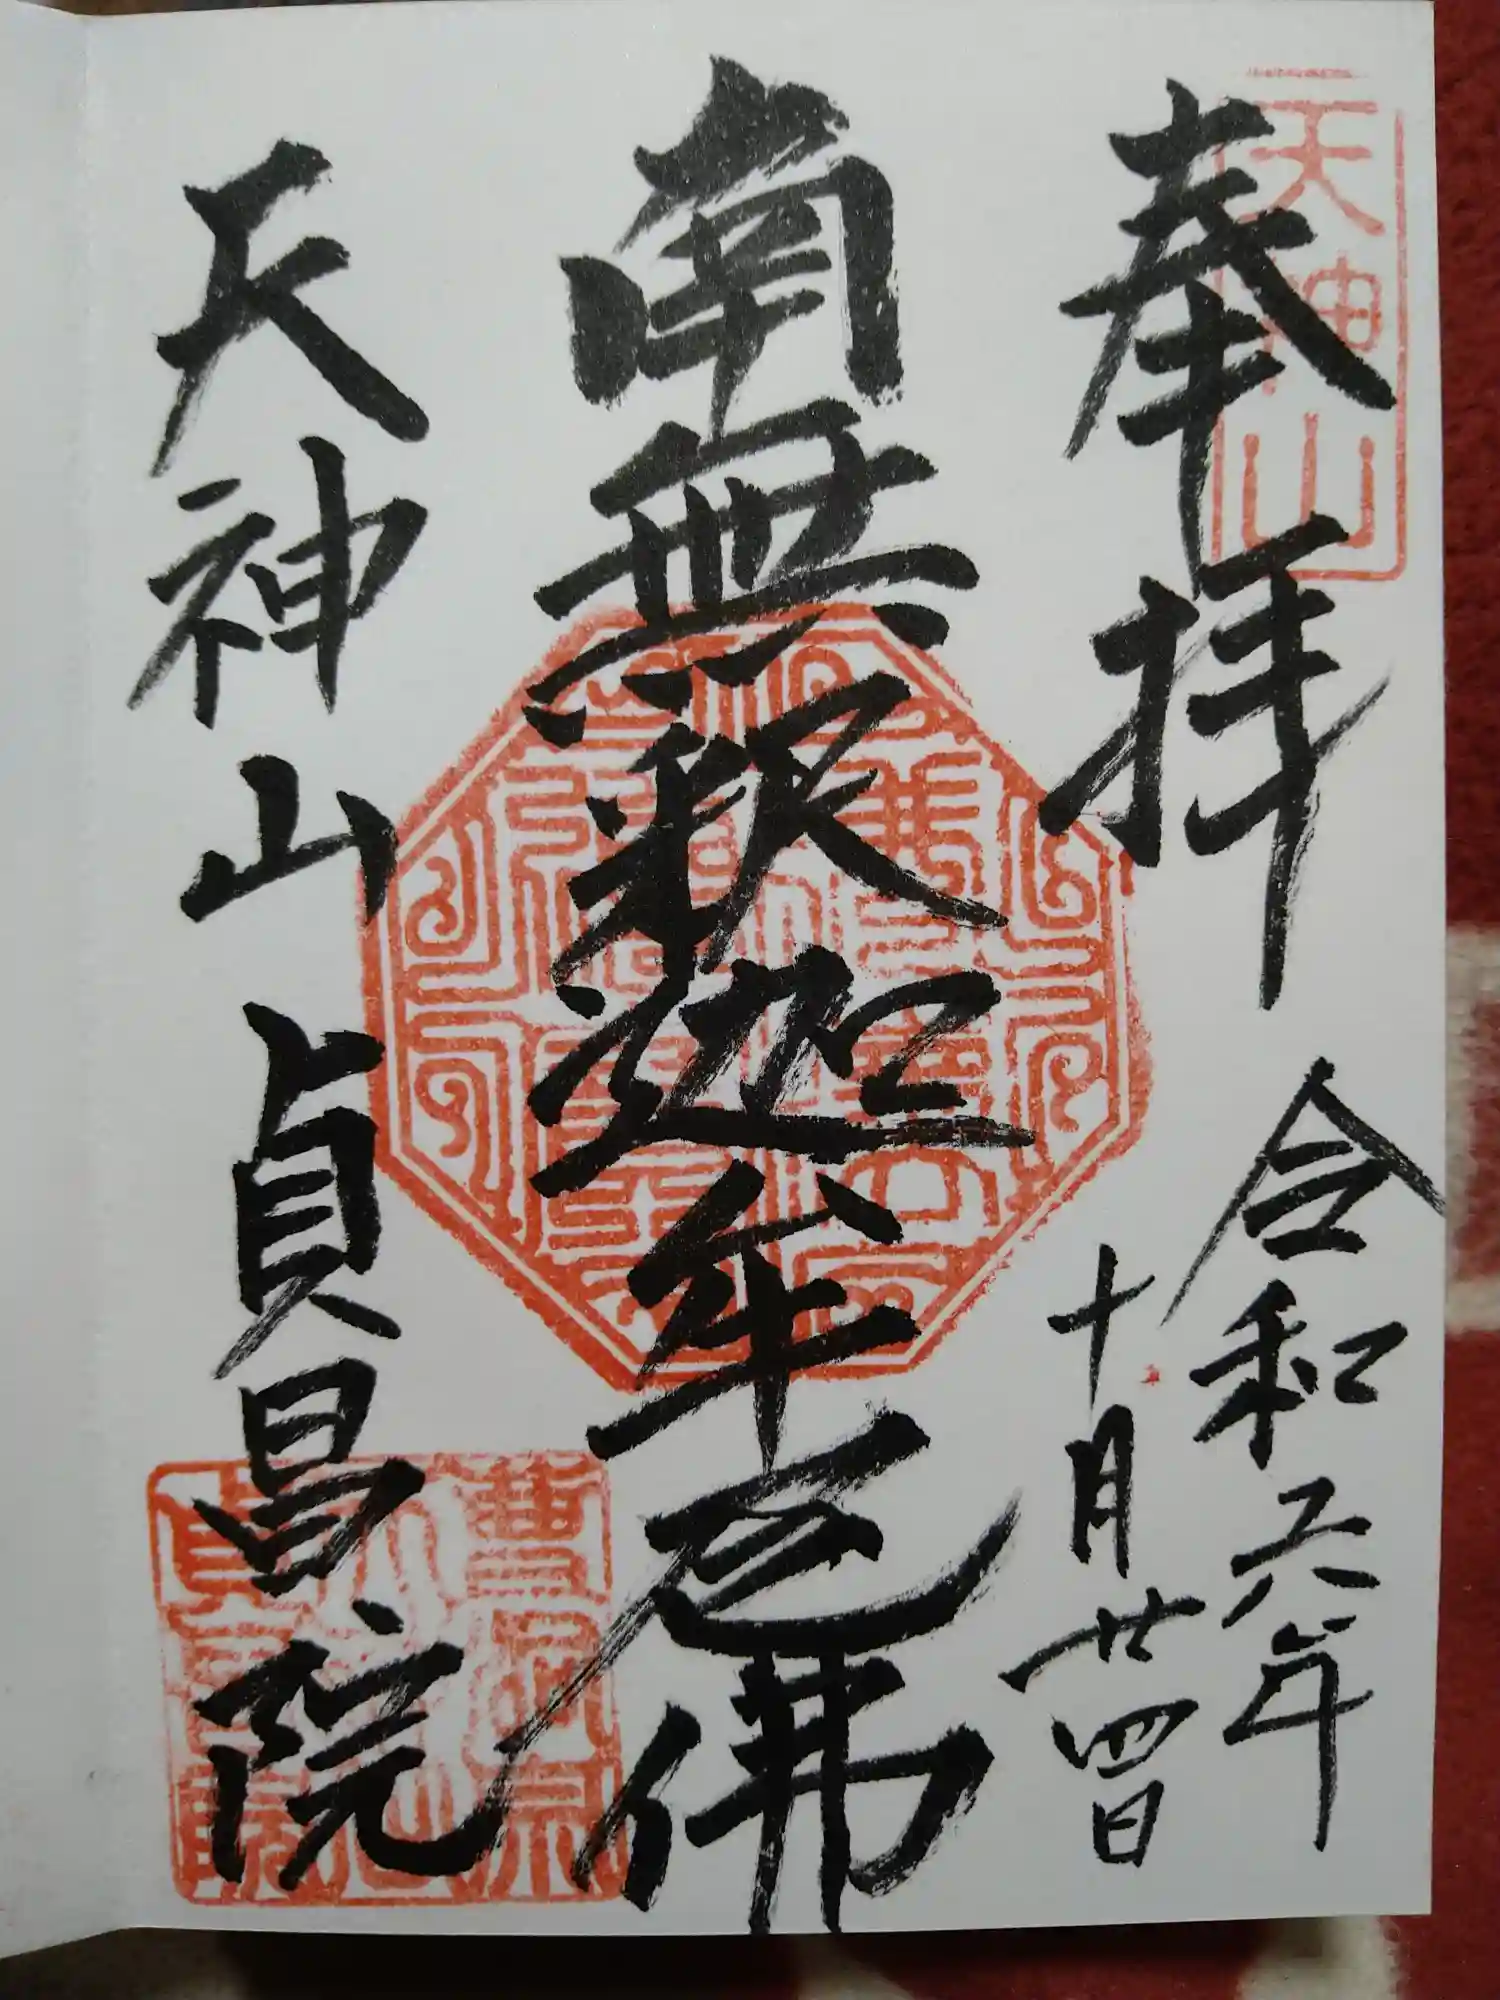 奉拝
天神山
令和六年
十月廿四日
南無釈迦牟尼佛
天神山貞昌院